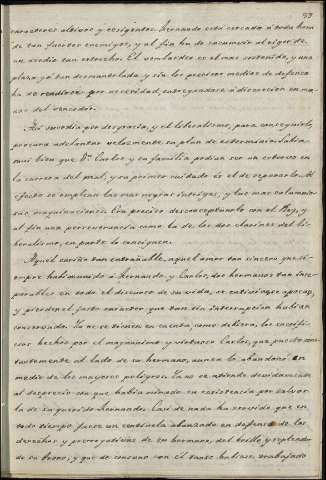 33
caracteres altivos y exigentes. Fernando está cercado á toda hora
de tan fuertes enemigos, y al fin ha de sucumbir al rigor de
un asedio tan estrecho. El bombardeo es el mas sostenido, y una
plaza yá tan desmantelada, y sin los precisos medios de defensa
ha de rendirse por necesidad, entregándose á discrecion en ma-
nos del vencedor.
Asi sucedia por desgracia, y el liberalismo, para conseguirlo,
procura adelantar velozmente su plan de esterminio. Sabia
mui bien que Dn. Carlos y su familia podian ser un estorvo en
la carrera del mal, y su primer cuidado és el de separarlo. Al
efecto se emplean las mas negras intrigas, y las mas calumnio-
sas maquinaciones. Era preciso desconceptuarlo con el Rey, y
al fin una perseverancia como la de los dos clarines del li-
beralismo, en parte lo consiguen.
Aquel cariño tan entrañable, aquel amor tan sincero que si-
empre habia unido á Fernando y Carlos, dos hermanos tan inse-
parables en todo el discurso de su vida, se entivia
y pierde el justo carácter que tan sin interrupcion habian
conservado. Ya no se tienen en cuenta, como debiera, los sacrifi-
cios hechos por el magnánimo y virtuoso Carlos, que puesto cons-
tantemente al lado de su hermano, nunca lo abandonó en
medio de los mayores peligros. Ya no se atiende devidamente
al desprecio con que habia mirado su existencia por salvar
la de su querido Fernando. Casi de nada ha servido que en
todo tiempo fuese un centinela abanzado en defensa de los
derechos y prerrogativas de su hermano, del brillo y esplendor
de su trono, y que de consuno con él tanto hubiese trabajado